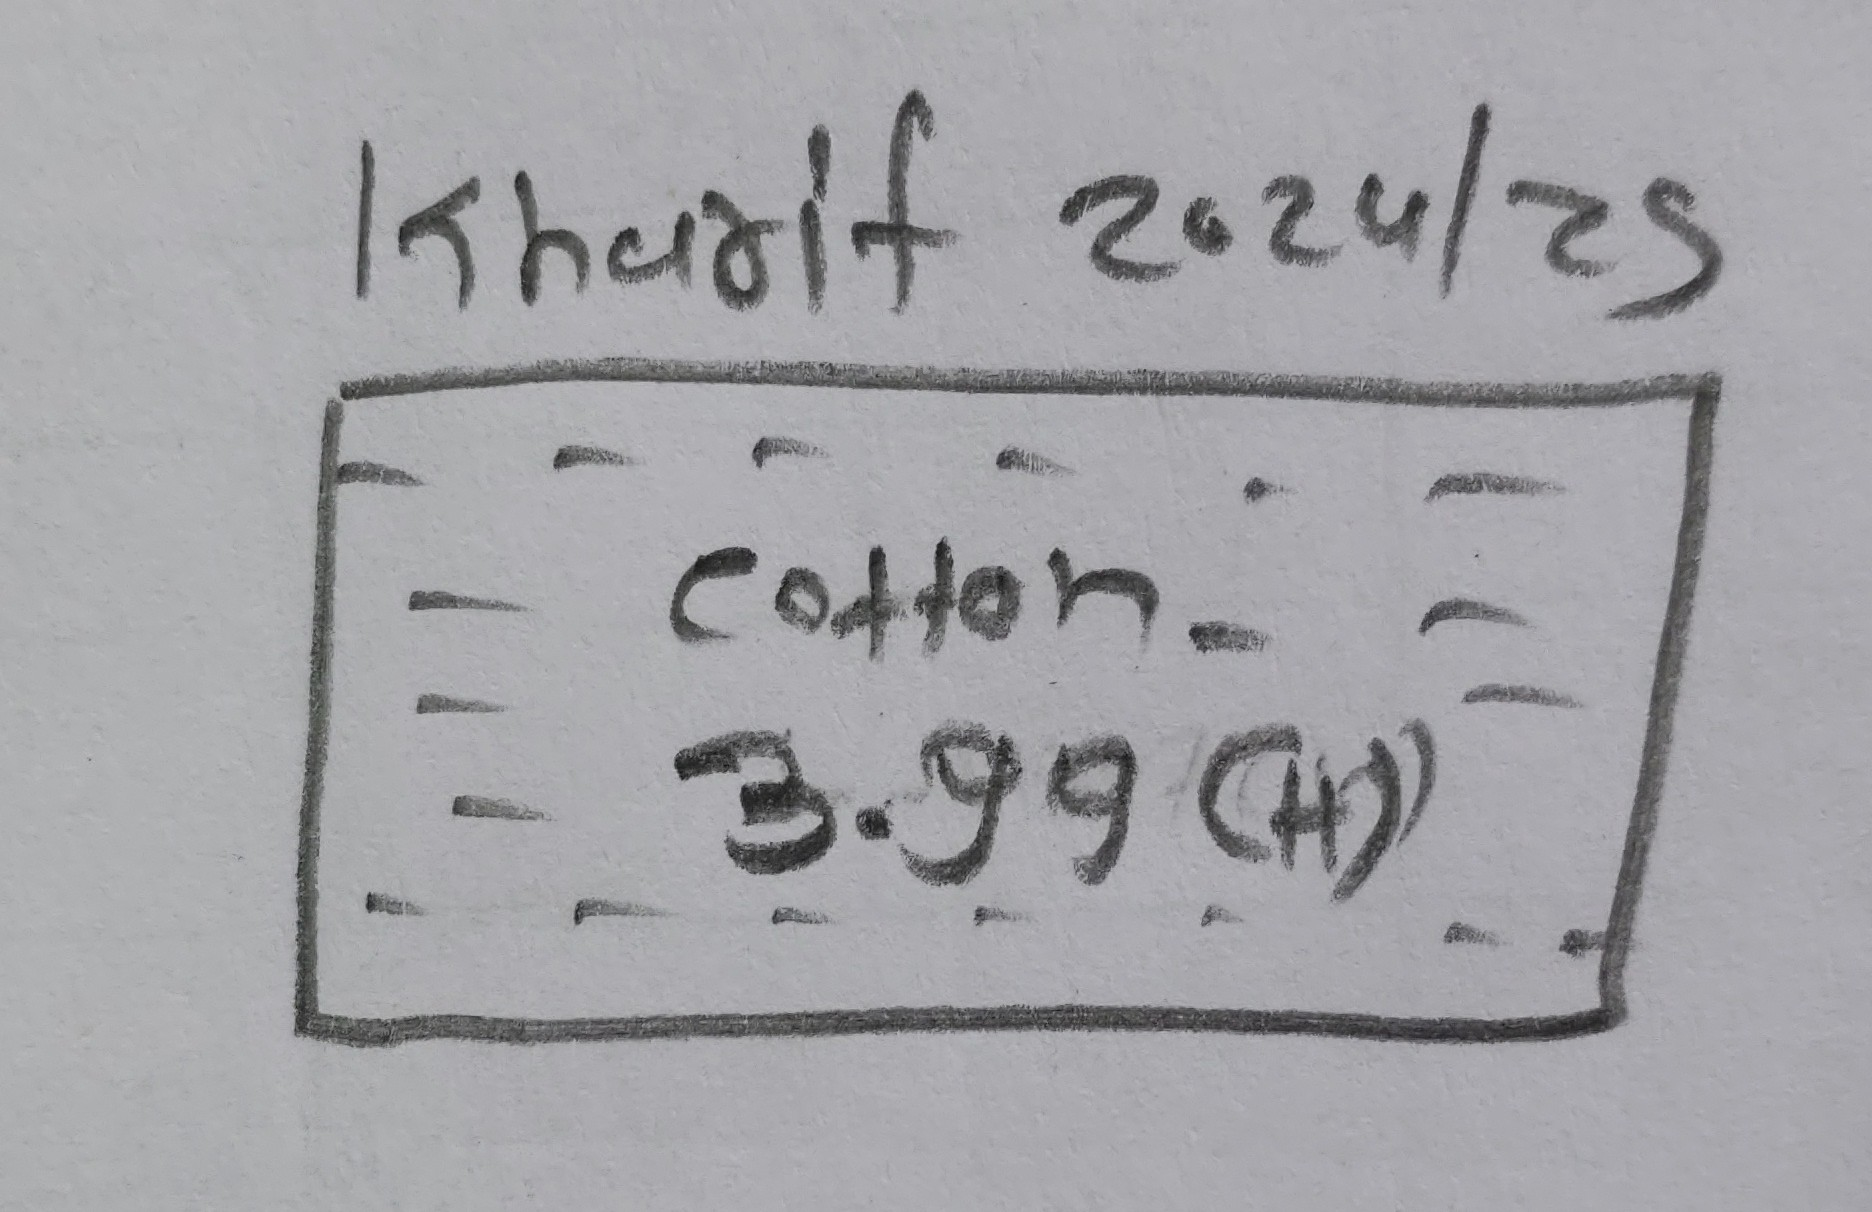 Kharif 2024/25
Cotton
3.99 (H)